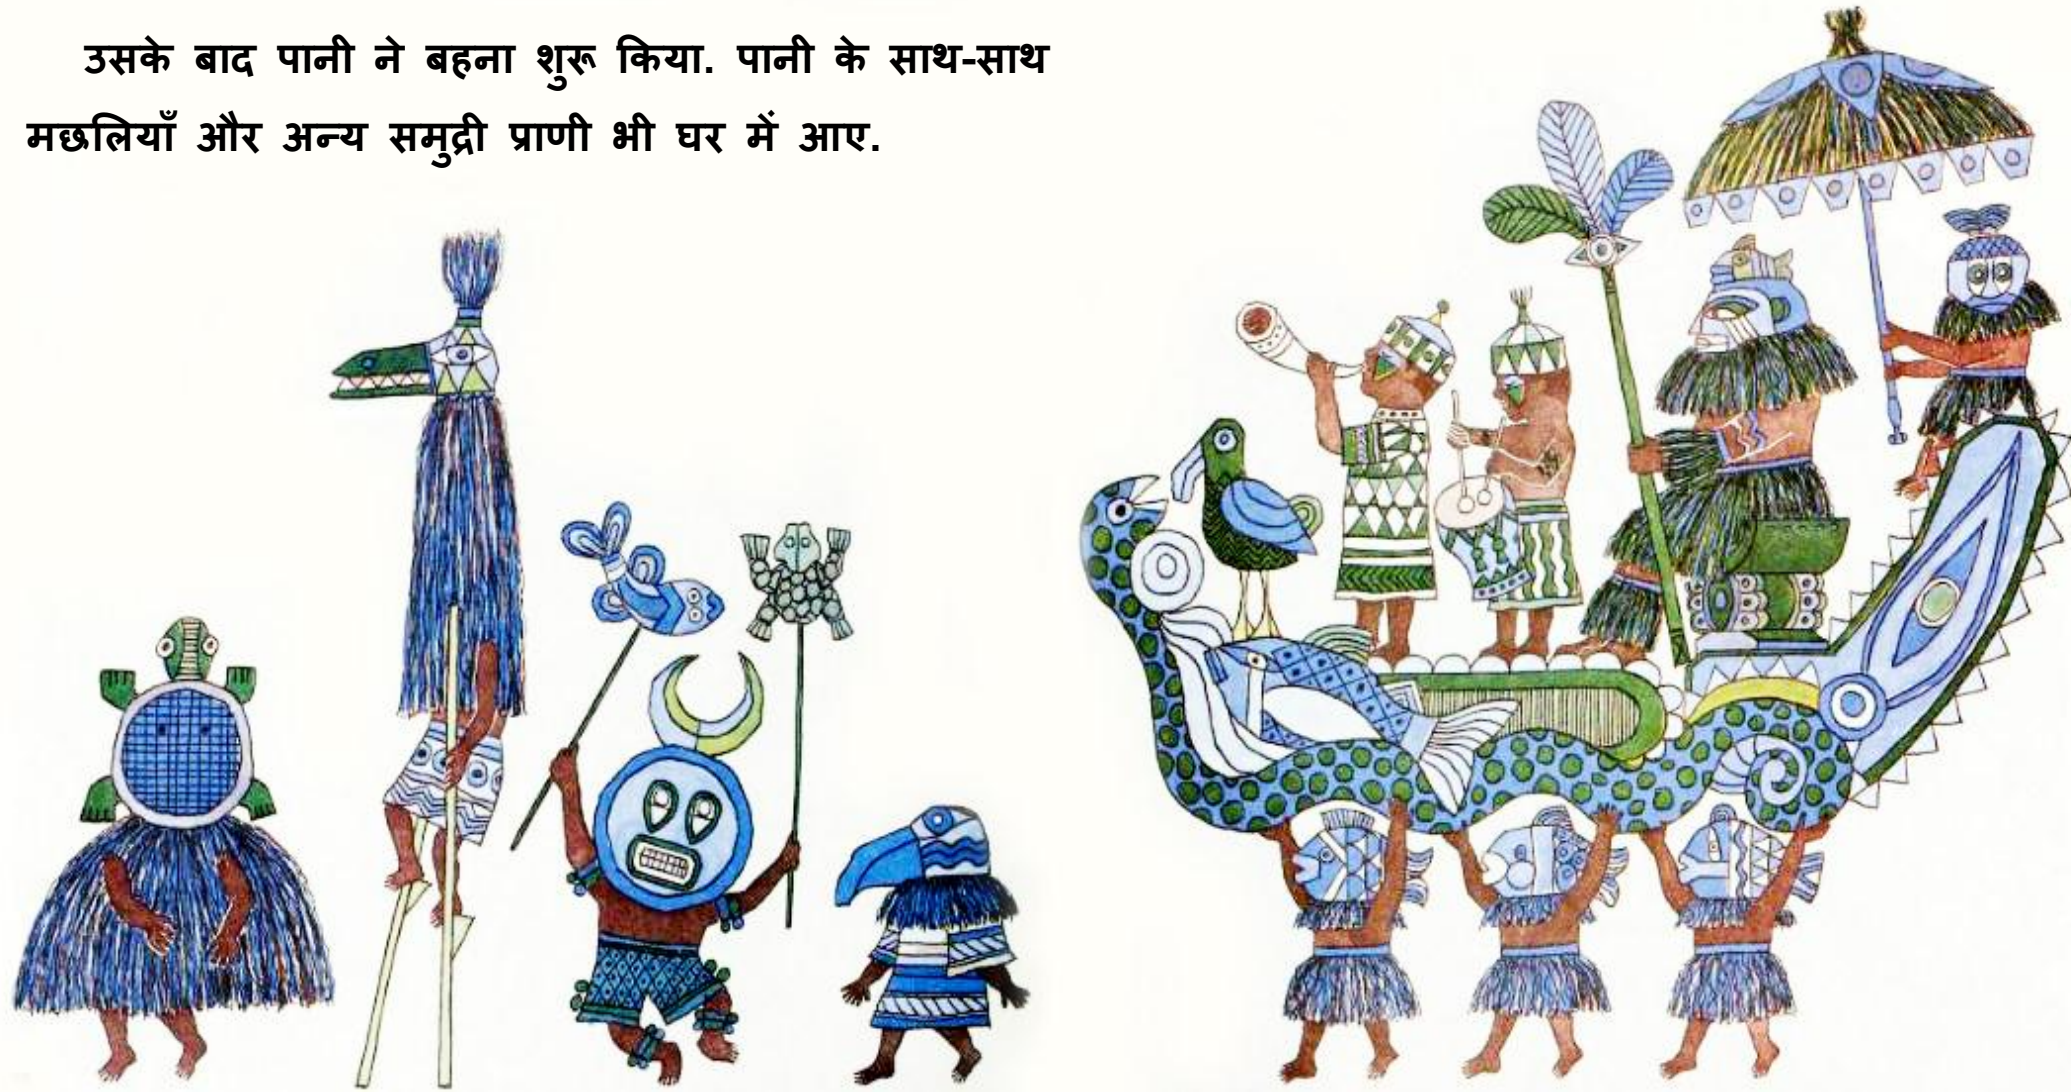 उसके बाद पानी ने बहना शुरू किया. पानी के साथ-साथ
मछलियाँ और अन्य समुद्री प्राणी भी घर में आए.